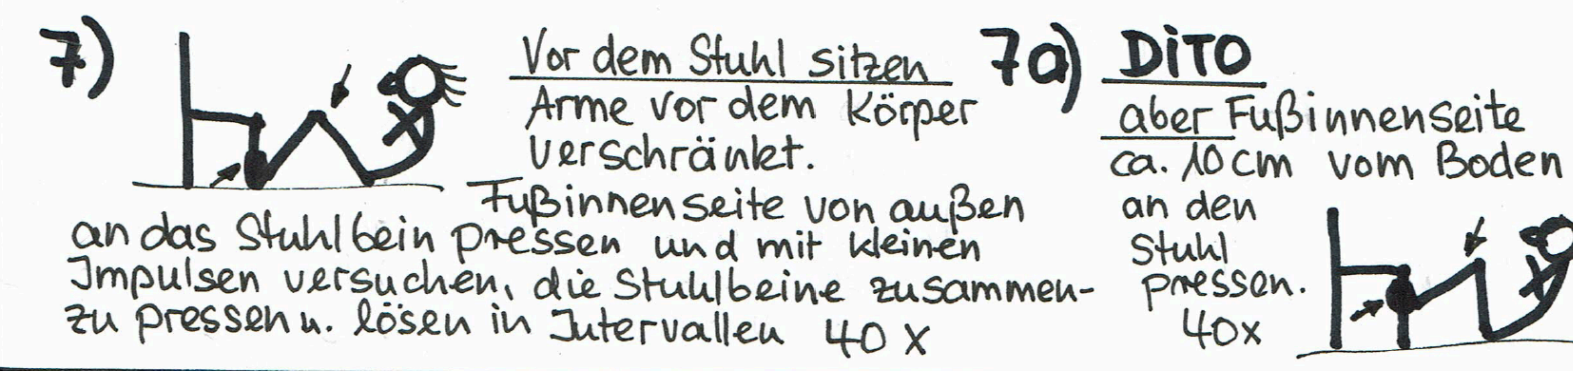 7)
Vor dem Stuhl sitzen
Arme vor dem Körper
verschränkt.
Fußinnenseite von außen
an das Stuhlbein pressen und mit kleinen
Impulsen versuchen, die Stuhlbeine zusammen-
zu pressen u. lösen in Intervallen 40 x
7a) DiTO
aber Fußinnenseite
ca. 10 cm vom Boden
an den
Stuhl
pressen.
40x